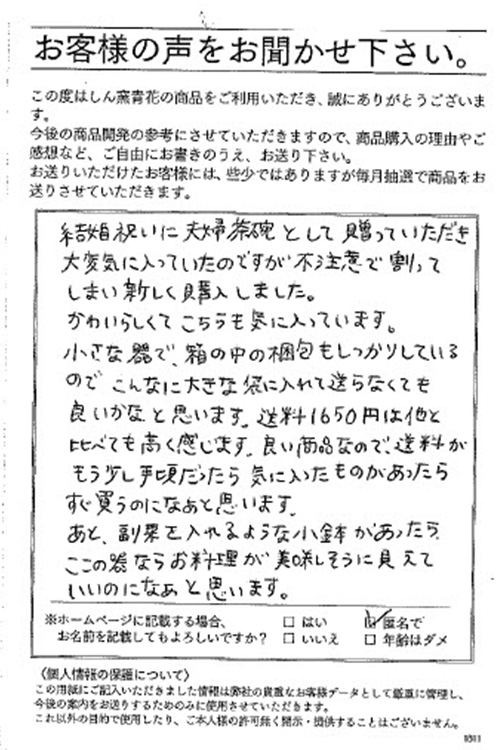 お客様の声をお聞かせ下さい。
この度はしん窯青花の商品をご利用いただき、誠にありがとうございま
す。
今後の商品開発の参考にさせていただきますので、商品購入の理由やご
感想など、ご自由にお書きのうえ、お送り下さい。
お送りいただけたお客様には、些少ではありますが毎月抽選で商品をお
送りさせていただきます。
結婚祝いに夫婦茶碗として贈っていただき
大変気に入っていたのですが不注意で割って
しまい新しく購入しました。
かわいらしくてこちらも気に入っています。
小さな器で、箱の中の梱包もしっかりしている
のでこんなに大きな袋に入れて送らなくても
良いかなと思います。送料1650円は他と
比べても高く感じます。良い商品なので、送料が
もう少し手頃だったら気に入ったものがあったら
すぐ買うのになあと思います。
あと、副菜を入れるような小鉢があったら
ここの器ならお料理が美味しそうに見えて
いいのになぁと思います。
※ホームページに記載する場合、 □ はい ☑ 匿名で
お名前を記載してもよろしいですか? □ いいえ □ 年齢はダメ
〈個人情報の保護について〉
この用紙にご記入いただきました情報は弊社の貴重なお客様データとして厳重に管理し、
今後の案内をお送りするためのみに使用させていただきます。
これ以外の目的で使用したり、ご本人様の許可無く開示・提供することはございません。
1811